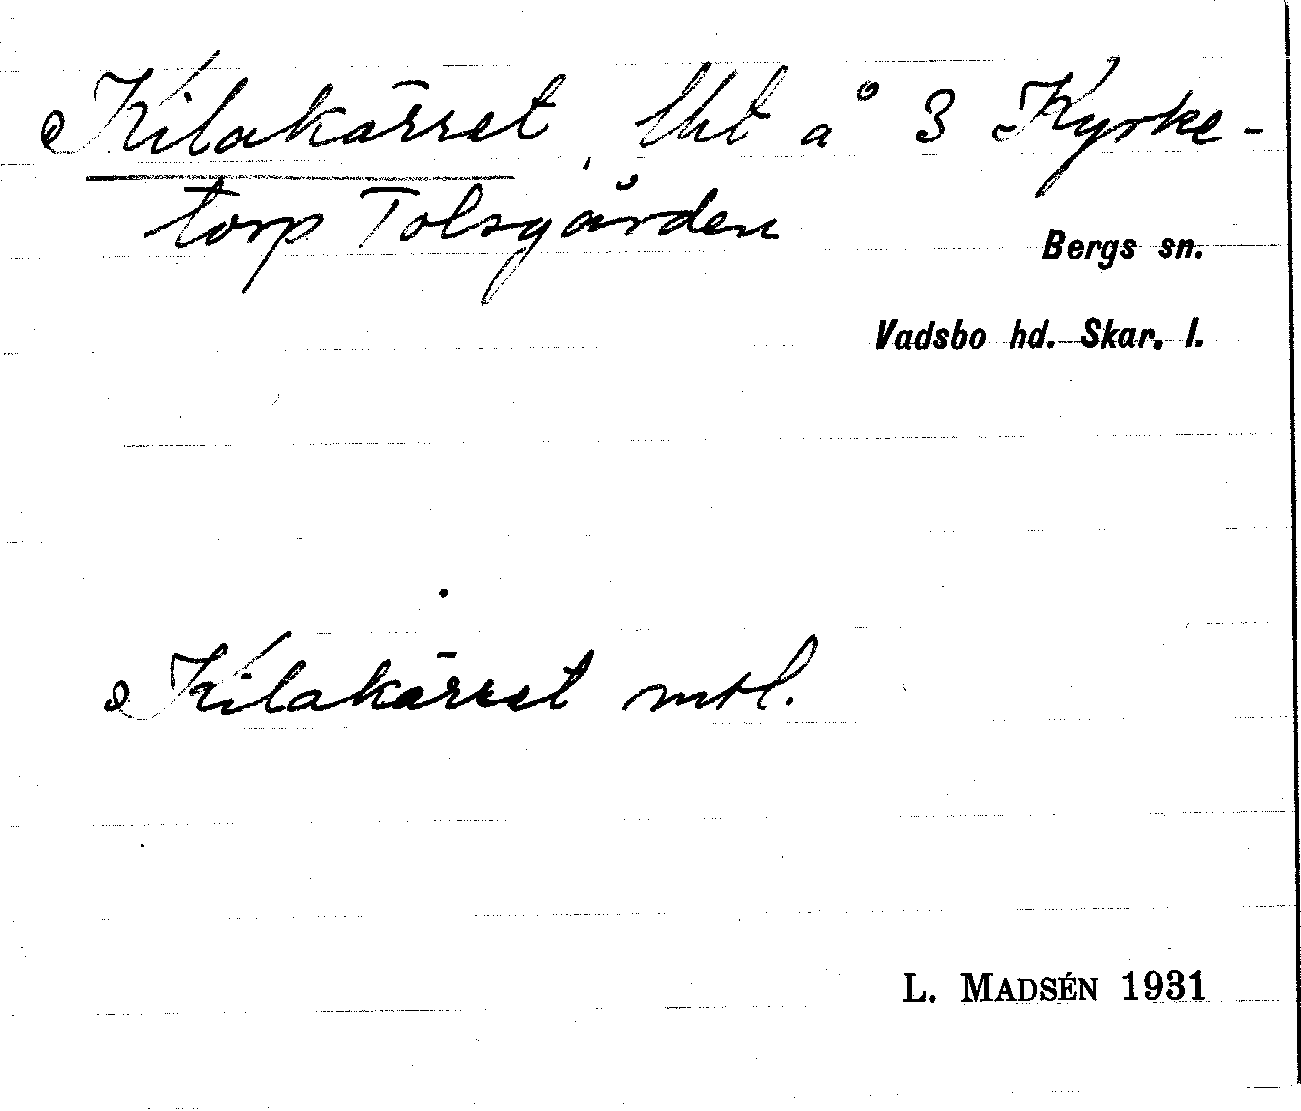 Kilakärret, lht å 3 Kyrke-
torp Tolsgården
Bergs sn.
Vadsbo hd. Skar. l.
Kilakärret mtl.
L. MADSÉN 1931